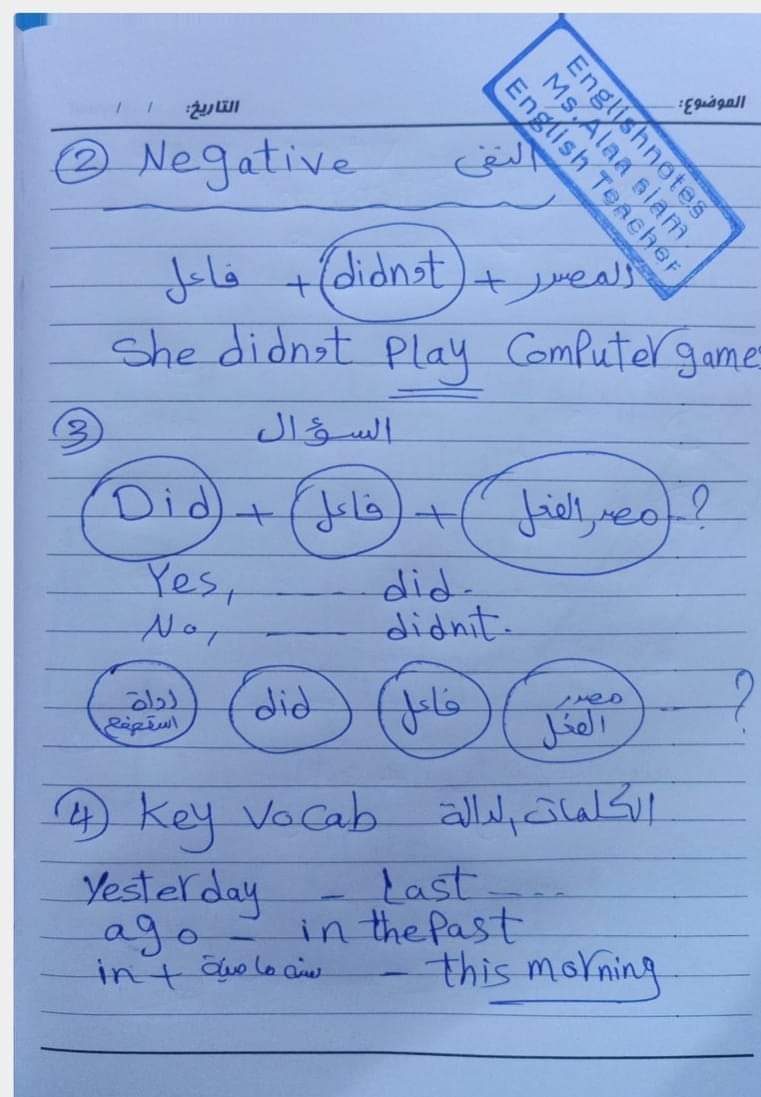 الموضوع: التاريخ: / /
Englishnotes
Ms.Alaa Slam
English Teacher
② Negative النفى
فاعل + didn't + المصدر
She didn't Play Computer game
③ السؤال
Did + فاعل + مصدر الفعل --?
Yes, ---- did.
No, ---- didn't.
اداة استفهام did فاعل مصدر الفعل --- ?
④ Key Vocab الكلمات الدالة
Yesterday - Last ----
ago - in the Past
in + سنه ماضية - this morning